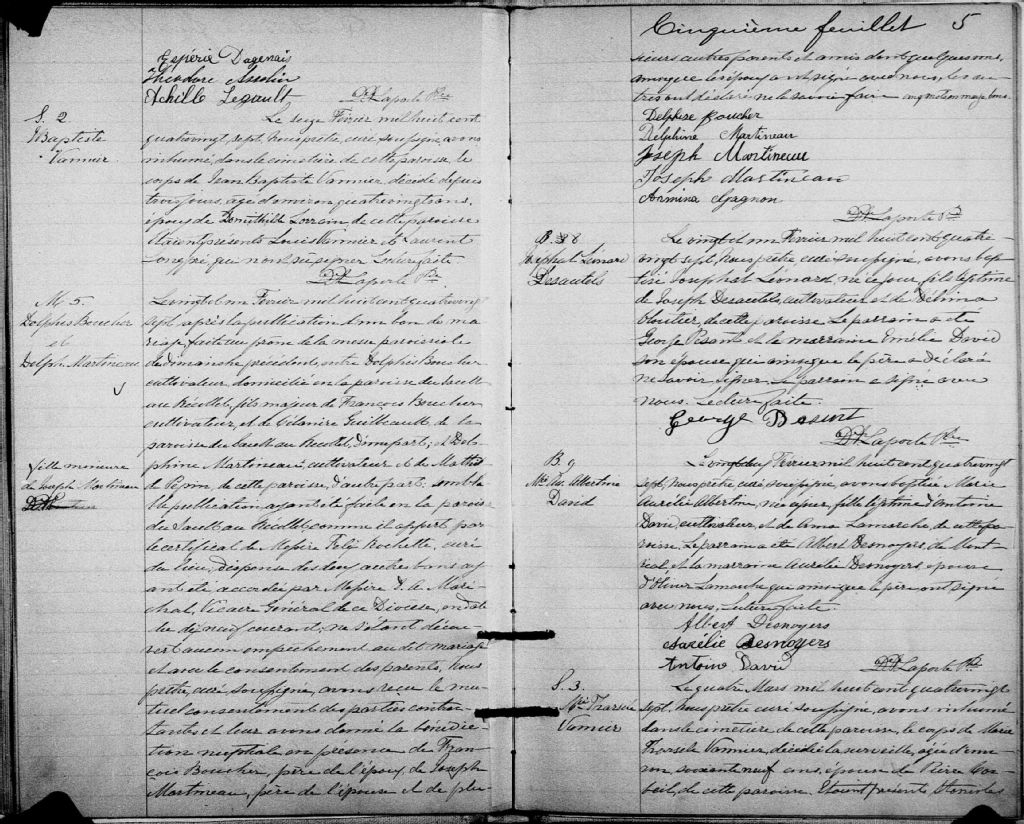 Espérie Dagenais
Théodore Asselin
Achille Legault
Laporte Ptre
S. 2
J Baptiste
Vannier
Le seize Février mil huit cent
quatrevingt sept, nous prêtre, curé soussigné, avons
inhumé, dans le cimetière de cette paroisse, le
corps de Jean Baptiste Vannier, décédé depuis
trois jours, âgé d'environ quatrevingts ans,
époux de Domithilde Lorrain de cette paroisse
Étaient présents Louis Vannier et Laurent
qui n'ont su signer Lecture faite
Laporte Ptre
M. 5.
Dolphis Boucher
et
Delph. Martineau
Le vingt et un Février mil huit cent quatrevingt
sept, après la publication d'un ban de ma-
riage, faite au prône de la messe paroissiale
le dimanche précédent, entre Dolphis Boucher
cultivateur, domicilié en la paroisse du Sault
au Récollet, fils majeur de François Boucher
cultivateur, et de Célanire Guilbeault de la
paroisse du Sault au Récollet, d'une part; et Del-
phine Martineau, cultivateur et de Mathil-
de Pépin, de cette paroisse, d'autre part; sembla-
ble publication ayant été faite en la parois-
se du Sault au Récollet comme il appert par
le certificat de Messire Félix Rochette, curé
du lieu, dispense des deux autres bans ay-
ant été accordée par Messire L. de Maré-
chal, Vicaire Général de ce Diocèse, en date
du dix neuf courant; ne s'étant décou-
vert aucun empêchement au dit mariage
et avec le consentement des parents, Nous
prêtre, curé soussigné, avons reçu le mu-
tuel consentement des parties contrac-
tantes et leur avons donné la bénédic-
tion nuptiale en présence de Fran-
çois Boucher, père de l'époux, de Joseph
Martineau, père de l'épouse et de plu-
fille mineure
de Joseph Martineau
Cinquième feuillet 5
sieurs autres parents et amis dont quelques uns,
ainsi que les époux ont signé avec nous, les au-
tres ont déclaré ne le savoir faire
Delphise Boucher
Delphine Martineau
Joseph Martineau
Joseph Martineau
Armina Gagnon
Laporte Ptre
B. 8
Josephat Léonard
Desautels
Le vingt et un Février mil huit cent quatre-
vingt sept, nous prêtre curé soussigné, avons bap-
tisé Josephat Léonard, né ce jour, fils légitime
de Joseph Desautels, cultivateur et de Délima
Cloutier, de cette paroisse. Le parrain a été
George Pesant et la marraine Emélie David
son épouse qui ainsi que le père a déclaré
ne savoir signer. Le parrain a signé avec
nous. Lecture faite
George Pesant
Laporte Ptre
B. 9
Mie Au. Albertine
David
Le vingt Février mil huit cent quatrevingt
sept, nous prêtre curé, soussigné, avons baptisé Marie
Aurélie Albertine, née hier, fille légitime d'Antoine
David, cultivateur, et de Anna Lamarche de cette pa-
roisse. Le parrain a été Albert Desnoyers, de Mont-
réal, et la marraine Aurélie Desnoyers épouse
d'Olivier Lamarche qui ainsi que le père ont signé
avec nous, Lecture faite.
Albert Desnoyers
Aurélie Desnoyers
Antoine David
Laporte Ptre
S. 3.
Mie Tharsile
Vannier
Le quatre Mars mil huit cent quatrevingt
sept, nous prêtre curé soussigné, avons inhumé
dans le cimetière de cette paroisse, le corps de Marie
Tharsile Vannier, décédée la surveille, âgée d'envi-
ron, soixante neuf ans, épouse de Pierre Cor-
beil, de cette paroisse. Étaient présents, Stanislas